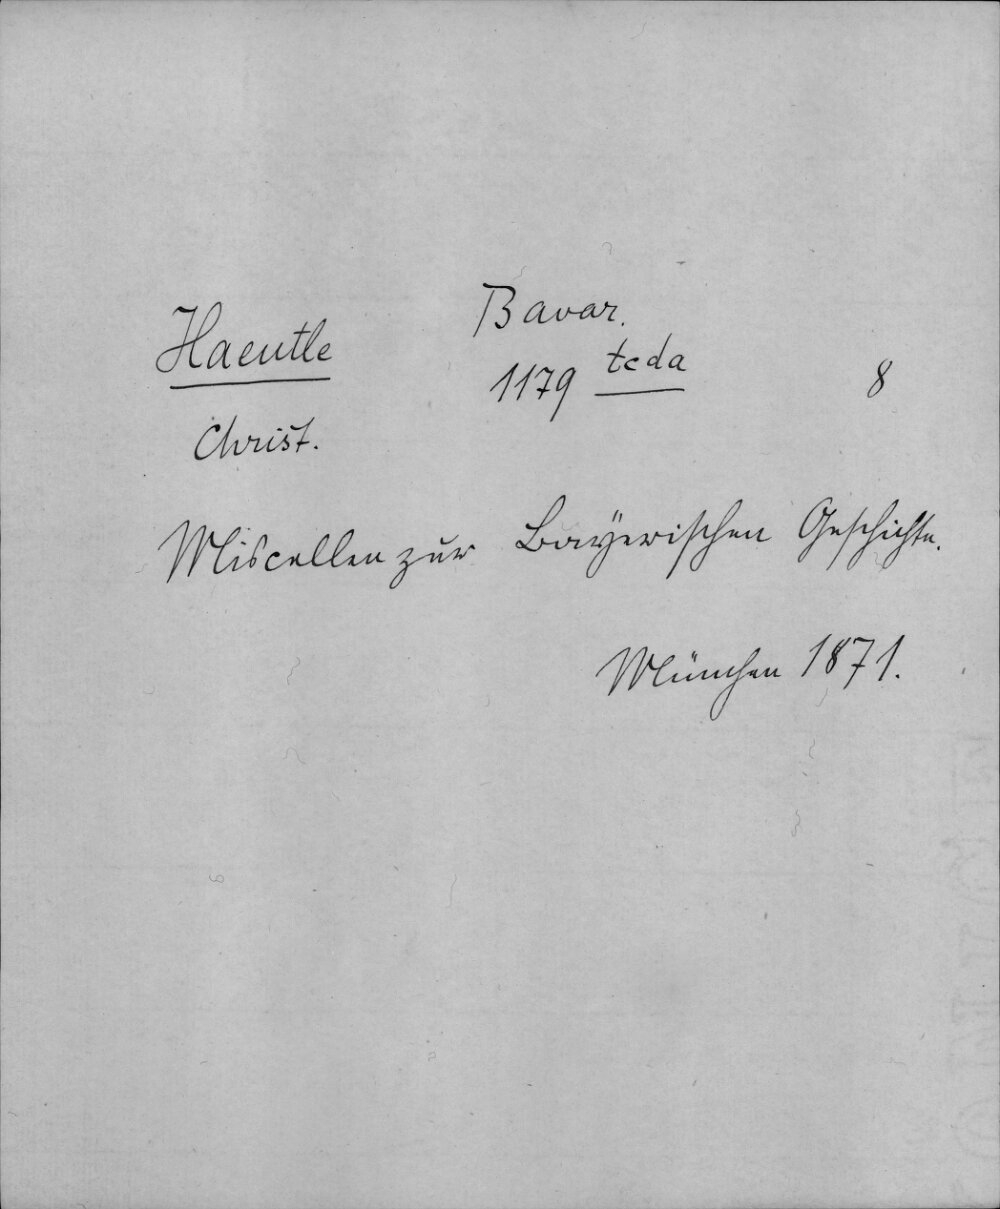 Bavar.
Haeutle 1179 tcda 8
Christ.
Miscellen zur Bayerischen Geschichte.
München 1871.